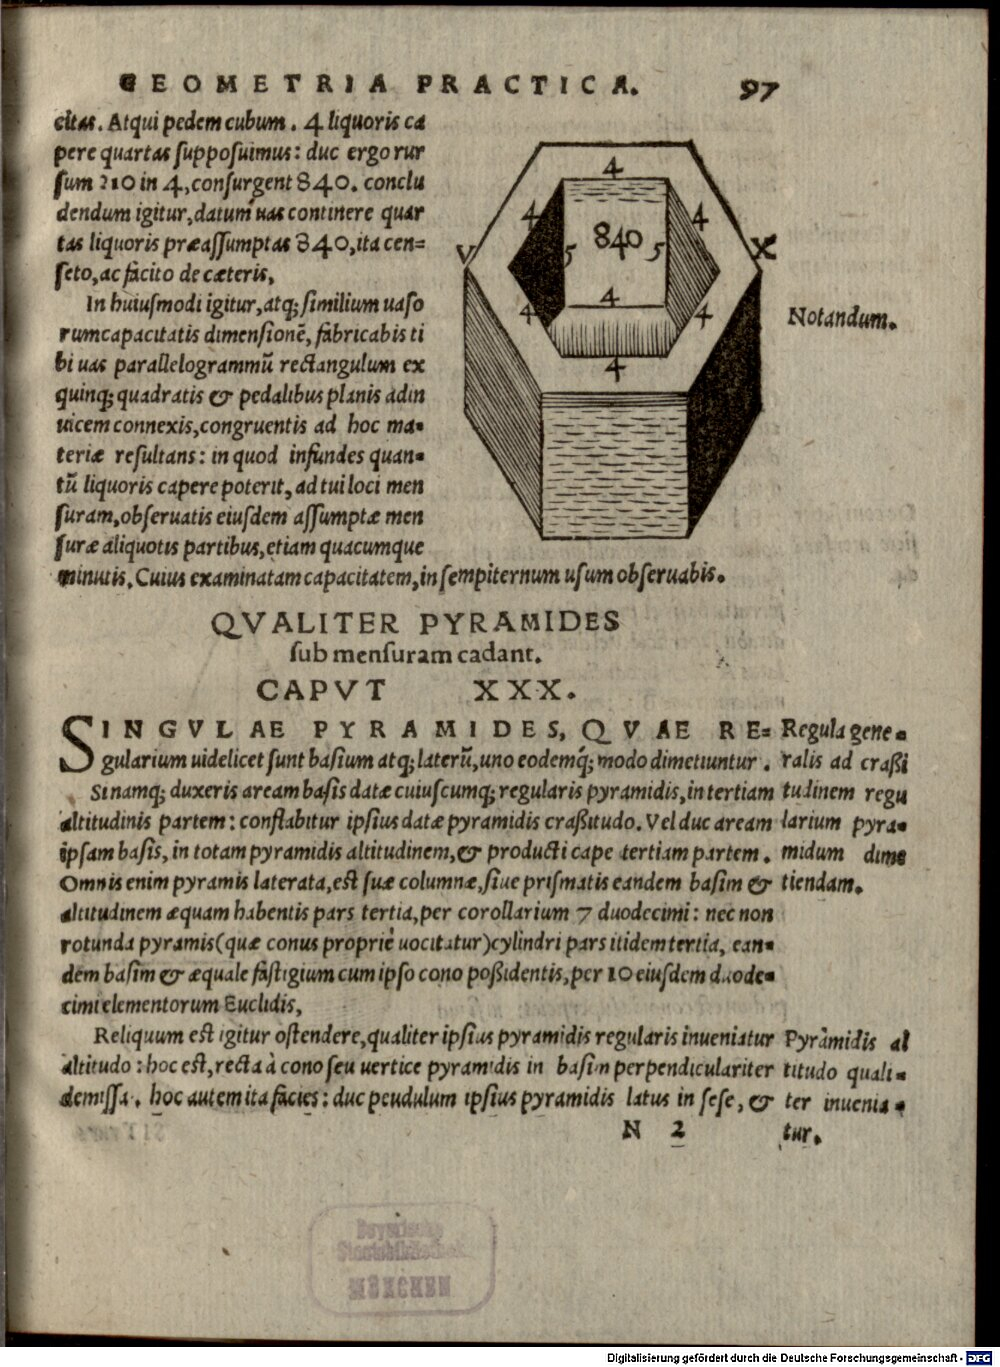 GEOMETRIA PRACTICA. 97
citas. Atqui pedem cubum . 4 liquoris ca
pere quartas supposuimus: duc ergo rur
sum 210 in 4, consurgent 840. conclu
dendum igitur, datum uas continere quar
tas liquoris præassumptas 840, ita cen=
seto, ac facito de cæteris,
In huiusmodi igitur, atq; similium uaso
rum capacitatis dimensionē, fabricabis ti
bi uas parallelogrammū rectangulum ex
quinq; quadratis & pedalibus planis adin
uicem connexis, congruentis ad hoc ma=
teriæ resultans: in quod infundes quan=
tū liquoris capere poterit, ad tui loci men
suram, obseruatis eiusdem assumptæ men
suræ aliquotis partibus, etiam quacumque
minutis, Cuius examinatam capacitatem, in sempiternum usum obseruabis.
4
4
4
V
5
840
5
X
4
4
4
4
Notandum.
QVALITER PYRAMIDES
sub mensuram cadant.
CAPVT XXX.
SINGVLAE PYRAMIDES, QVAE RE=
gularium uidelicet sunt basium atq; laterū, uno eodemq́; modo dimetiuntur .
Si namq; duxeris aream basis datæ cuiuscumq; regularis pyramidis, in tertiam
altitudinis partem: conflabitur ipsius datæ pyramidis crassitudo. Vel duc aream
ipsam basis, in totam pyramidis altitudinem, & producti cape tertiam partem .
Omnis enim pyramis laterata, est suæ columnæ, siue prismatis eandem basim &
altitudinem æquam habentis pars tertia, per corollarium 7 duodecimi: nec non
rotunda pyramis (quæ conus propriè uocitatur) cylindri pars itidem tertia, ean=
dem basim & æquale fastigium cum ipso cono possidentis, per 10 eiusdem duode=
cimi elementorum Euclidis,
Regula gene=
ralis ad crassi
tudinem regu
larium pyra=
midum dime
tiendam.
Reliquum est igitur ostendere, qualiter ipsius pyramidis regularis inueniatur
altitudo : hoc est, recta à cono seu uertice pyramidis in basim perpendiculariter
demissa. hoc autem ita facies: duc pendulum ipsius pyramidis latus in sese, &
Pyramidis al
titudo quali=
ter inuenia=
tur.
N 2
Bayerische
Staatsbibliothek
MÜNCHEN
Digitalisierung gefördert durch die Deutsche Forschungsgemeinschaft - DFG